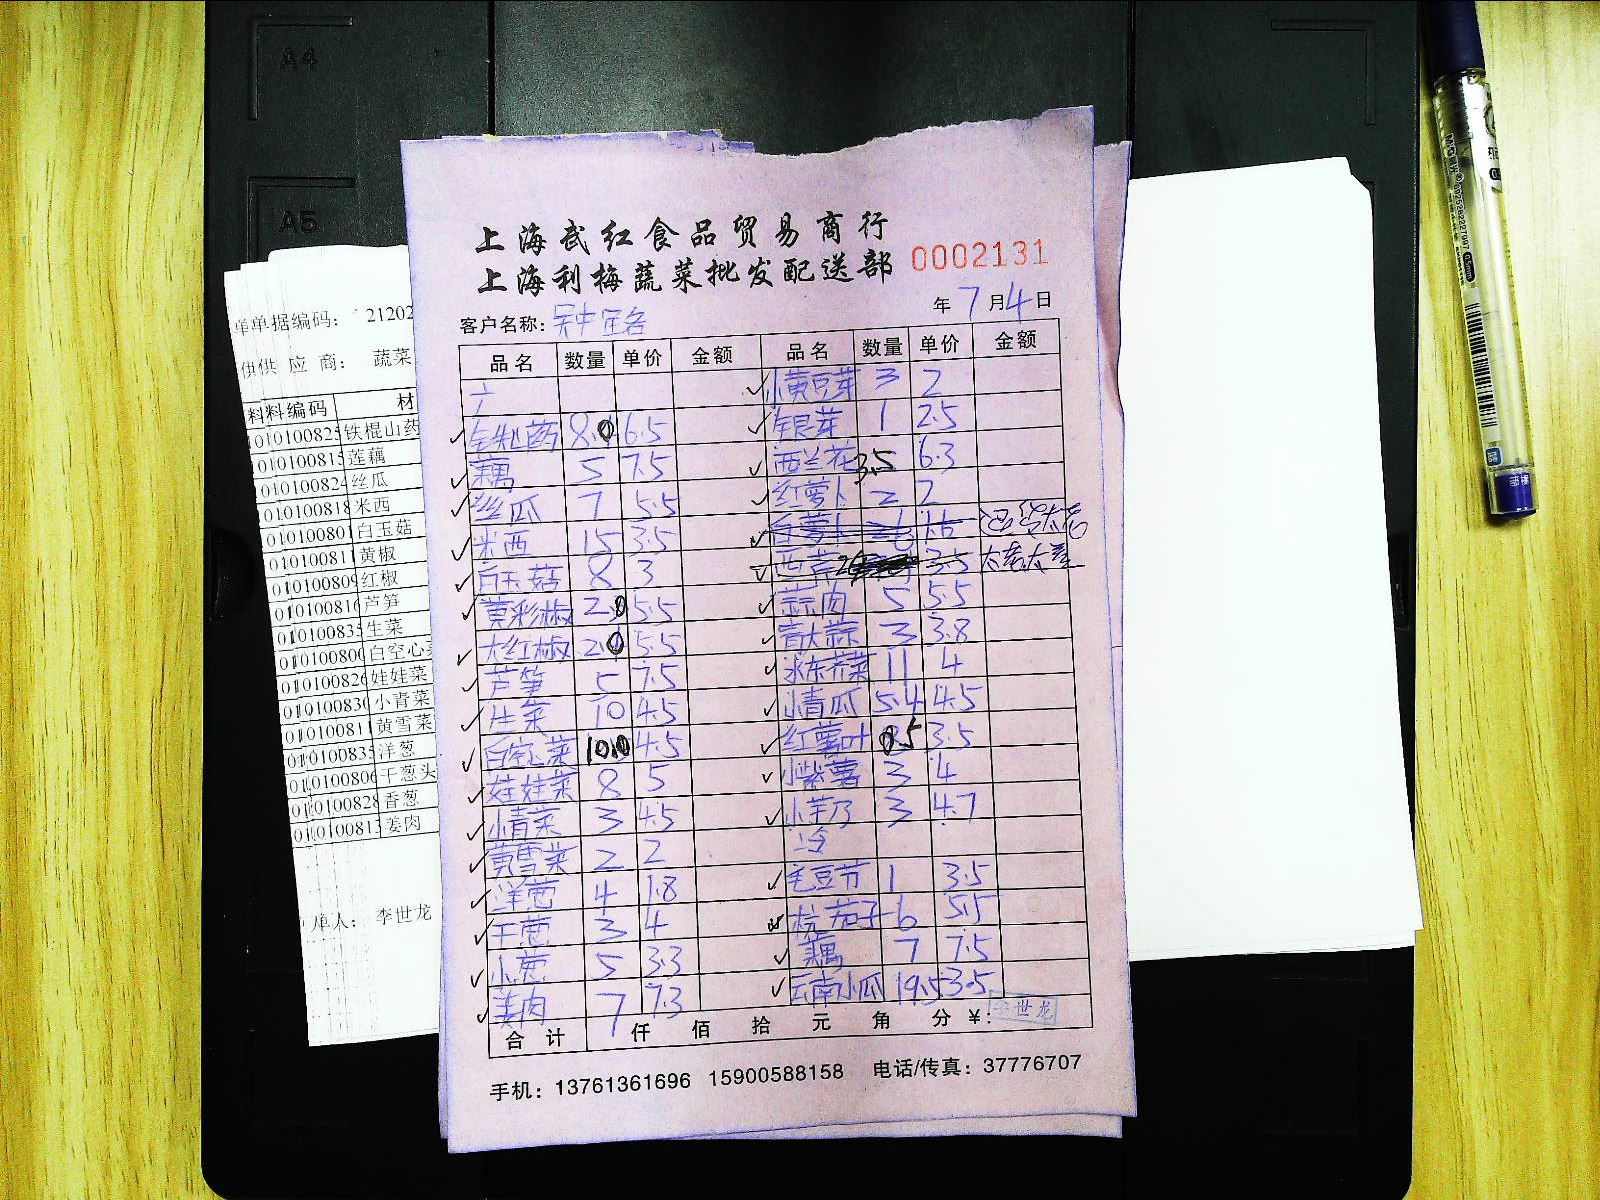 A4
A5
单单据编码： 21202
供供 应 商： 蔬菜
料料编码 材
010100825 铁棍山药
010100815 莲藕
010100824 丝瓜
010100818 米西
010100801 白玉菇
010100811 黄椒
010100809 红椒
010100816 芦笋
010100835 生菜
010100800 白空心菜
010100826 娃娃菜
010100830 小青菜
010100811 黄雪菜
010100835 洋葱
010100806 干葱头
010100828 香葱
010100813 姜肉
单人： 李世龙
上海武红食品贸易商行
上海利梅蔬菜批发配送部 0002131
年 7 月 4 日
客户名称：
品名 数量 单价 金额 品名 数量 单价 金额
小黄豆芽 3 2
铁山药 8.0 6.5 银芽 1 2.5
藕 5 7.5 西兰花 3.5 6.3
丝瓜 7 5.5 红萝卜 2 2
米西 15 3.5 白萝卜 1.6
白玉菇 8 3 西芹 3.5
黄彩椒 2.0 5.5 蒜肉 5 5.5
大红椒 2.0 5.5 青大蒜 3 3.8
芦笋 5 7.5 冰东芥菜 11 4
生菜 10 4.5 小青瓜 5.4 4.5
白空心菜 10.0 4.5 红薯叶 0.5 3.5
娃娃菜 8 5 小紫薯 3 4
小青菜 3 4.5 小芋艿 3 4.7
黄雪菜 2 2 冷
洋葱 4 1.8 毛豆节 1 3.5
干葱 3 4 杭茄子 6 5.5
小葱 5 3.3 藕 7 7.5
姜肉 7 7.3 云南小瓜 19.5 3.5
合计 仟 佰 拾 元 角 分 ¥： 李世龙
手机：13761361696 15900588158 电话/传真：37776707